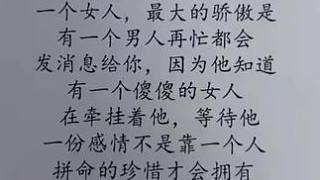 一个女人，最大的骄傲是
有一个男人再忙都会
发消息给你，因为他知道
有一个傻傻的女人
在牵挂着他，等待他
一份感情不是靠一个人
拼命的珍惜才会拥有